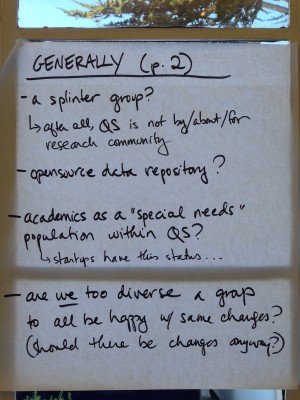 GENERALLY (p. 2)
- a splinter group?
↳ after all, QS is not by/about/for
research community
- opensource data repository?
- academics as a "special needs"
population within QS?
↳ startups have this status...
- are we too diverse a group
to all be happy w/ same changes?
(should there be changes anyway?)